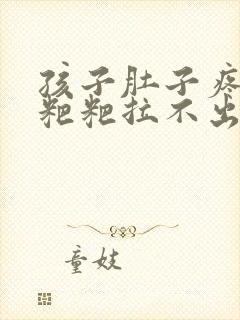 孩子肚子疼
粑粑拉不出
童妓